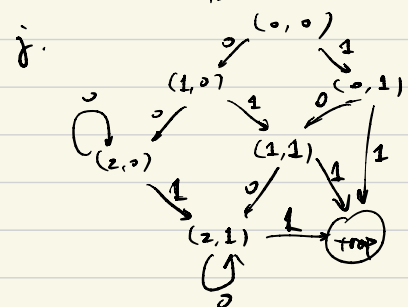 j.
(0,0)
0 1
(1,0) (0,1)
0 0 1 0 1
(2,0) (1,1)
1 0 1
(2,1) 1 trap
0